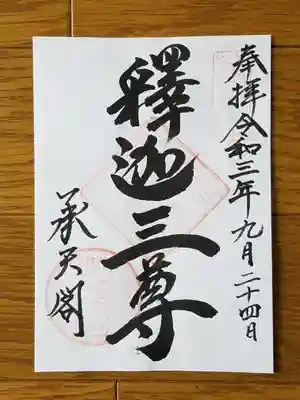 奉拝令和三年九月二十四日
釋迦三尊
承天閣